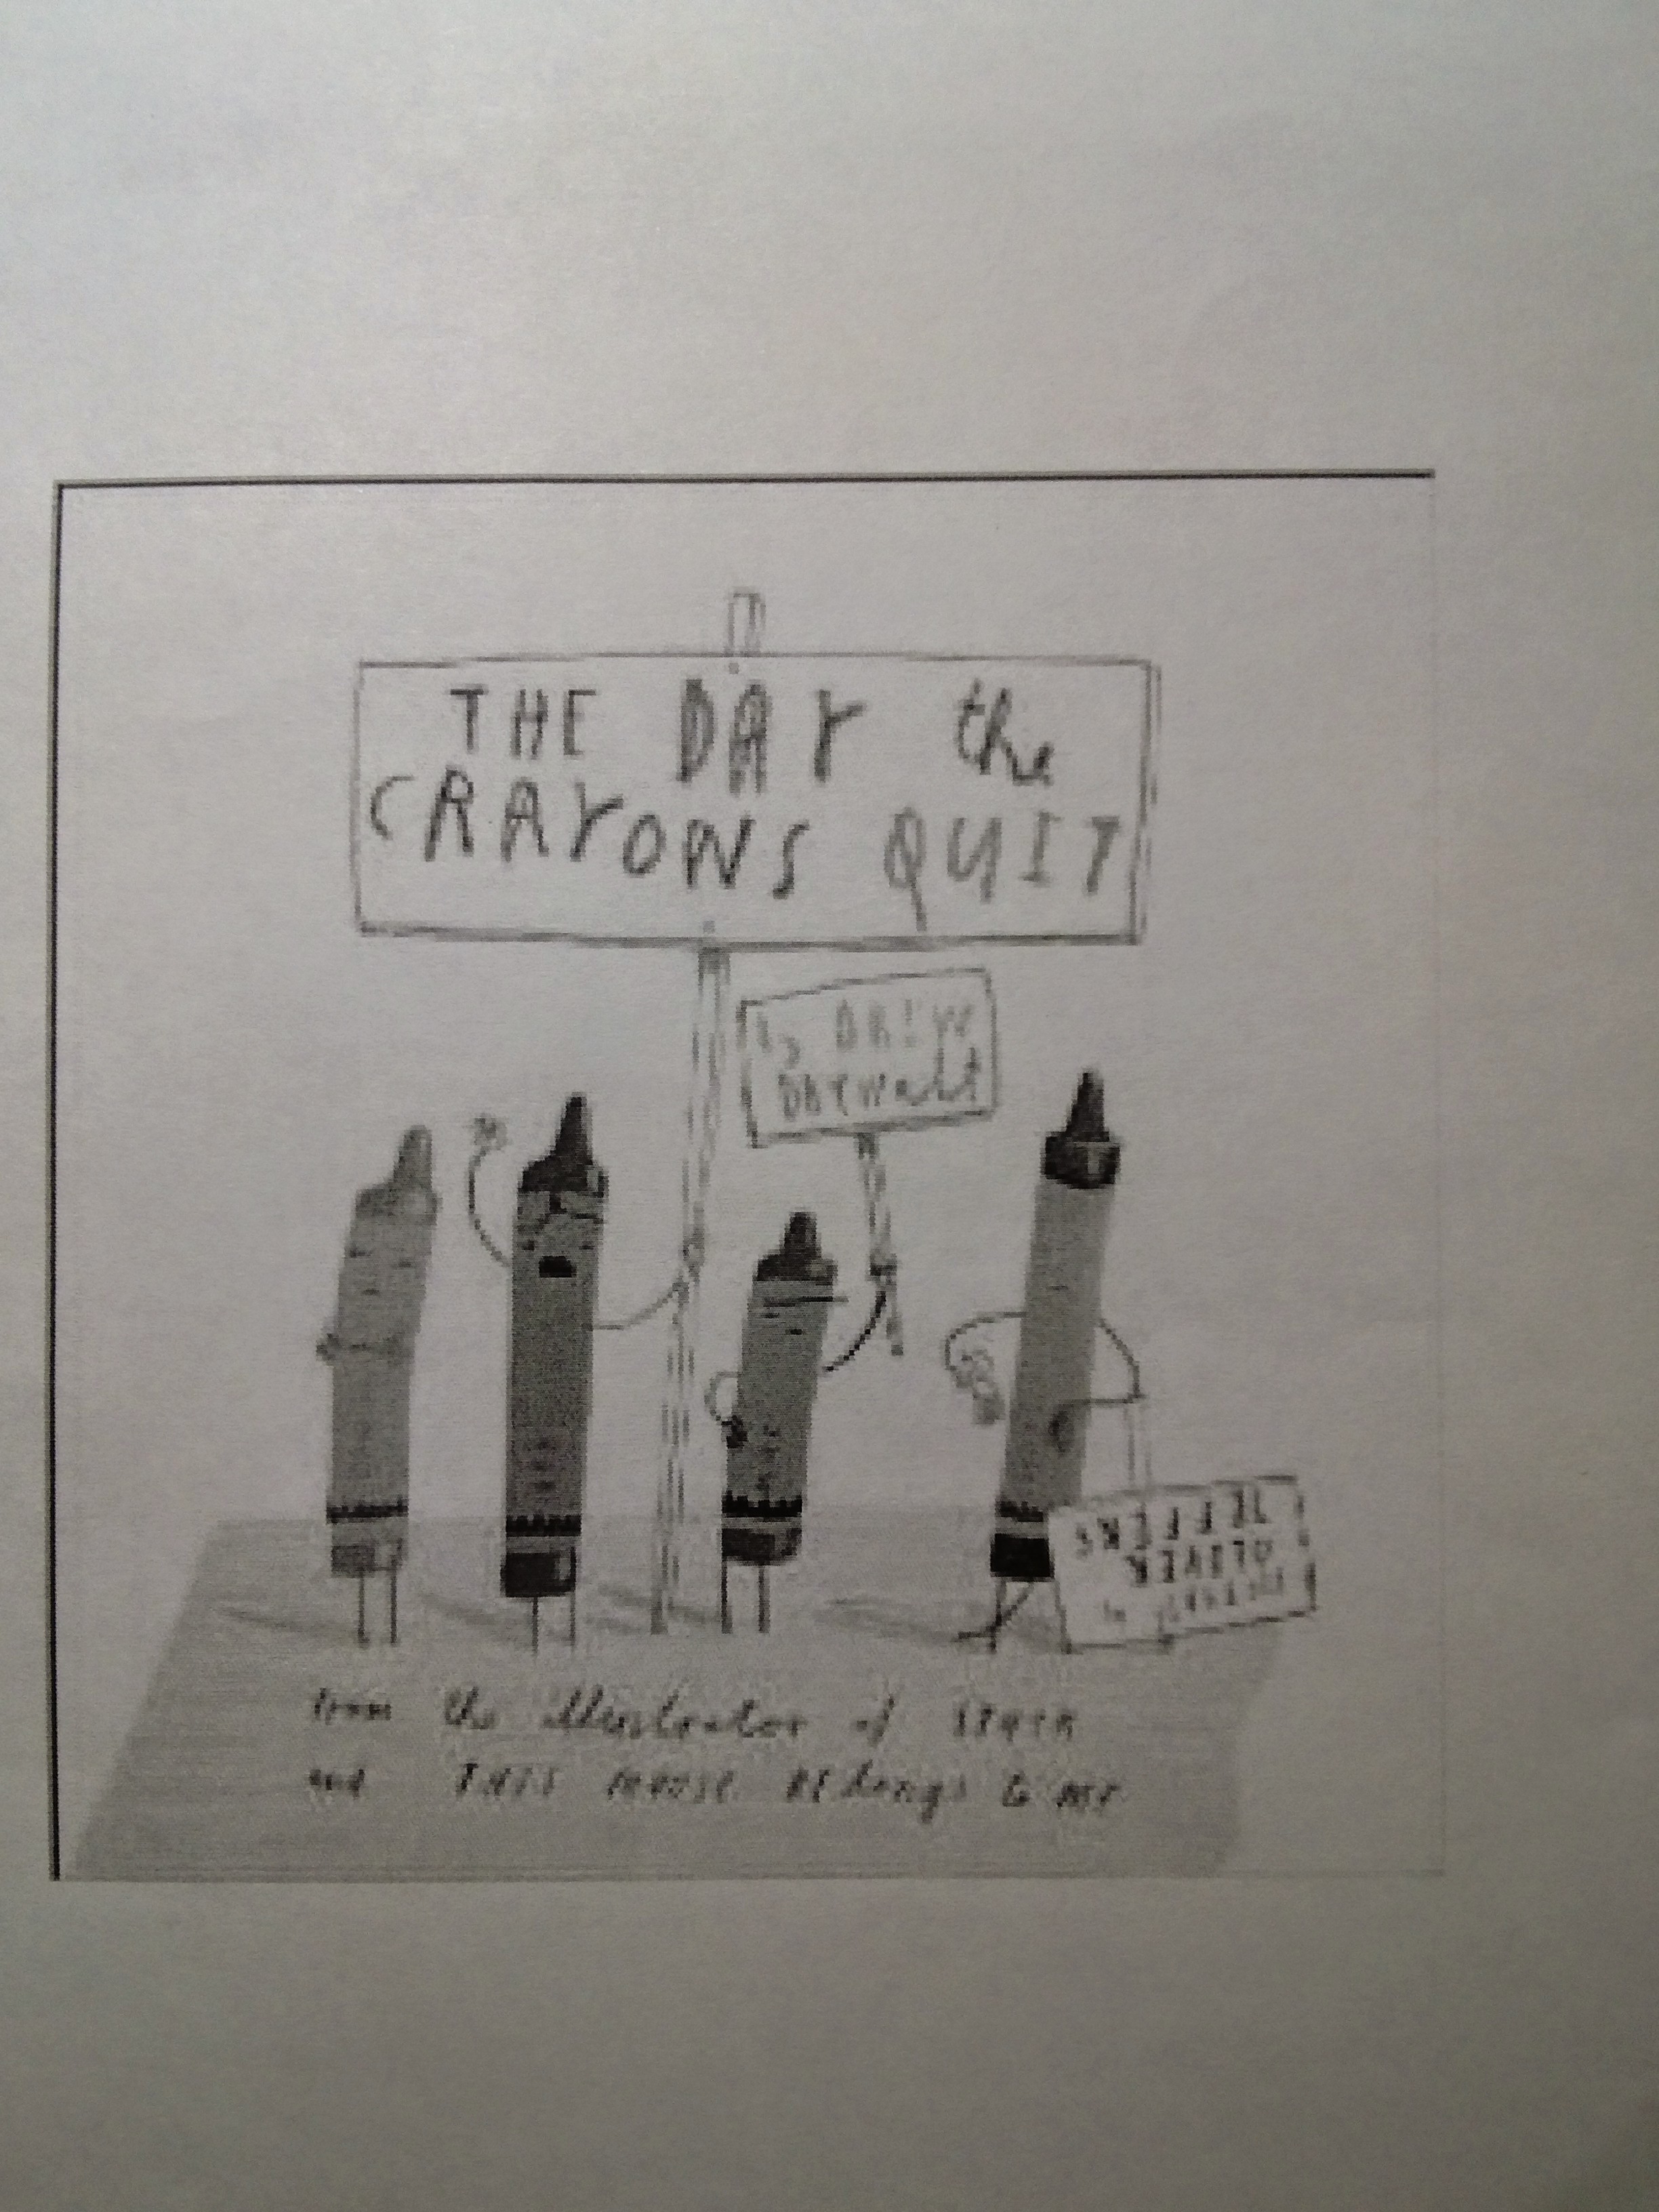 THE DAY the
CRAYONS QUIT
by DREW
DAYWALT
JEFFERS
OLIVER
by
from the illustrator of STUCK
and THIS MOOSE BELONGS to ME